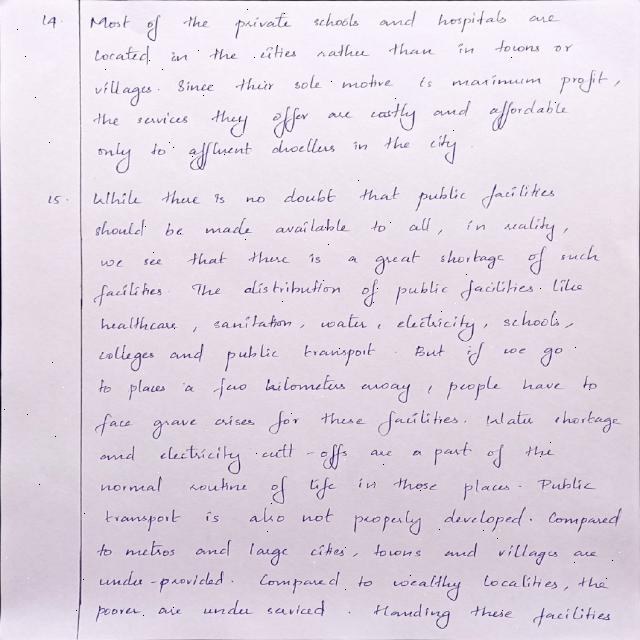 14. Most of the private schools and hospitals are
located in the cities rather than in towns or
villages. Since their sole motive is maximum profit,
the services they offer are costly and affordable
only to affluent dwellers in the city.
15. While there is no doubt that public facilities
should be made available to all, in reality,
we see that there is a great shortage of such
facilities. The distribution of public facilities like
healthcare, sanitation, water, electricity, schools,
colleges and public transport. But if we go
to places a few kilometers away, people have to
face grave crises for these facilities. Water shortage
and electricity cutt-offs are a part of the
normal routine of life in those places. Public
transport is also not properly developed. Compared
to metros and large cities, towns and villages are
under-provided. Compared to wealthy localities, the
poorer are under serviced. Handing these facilities